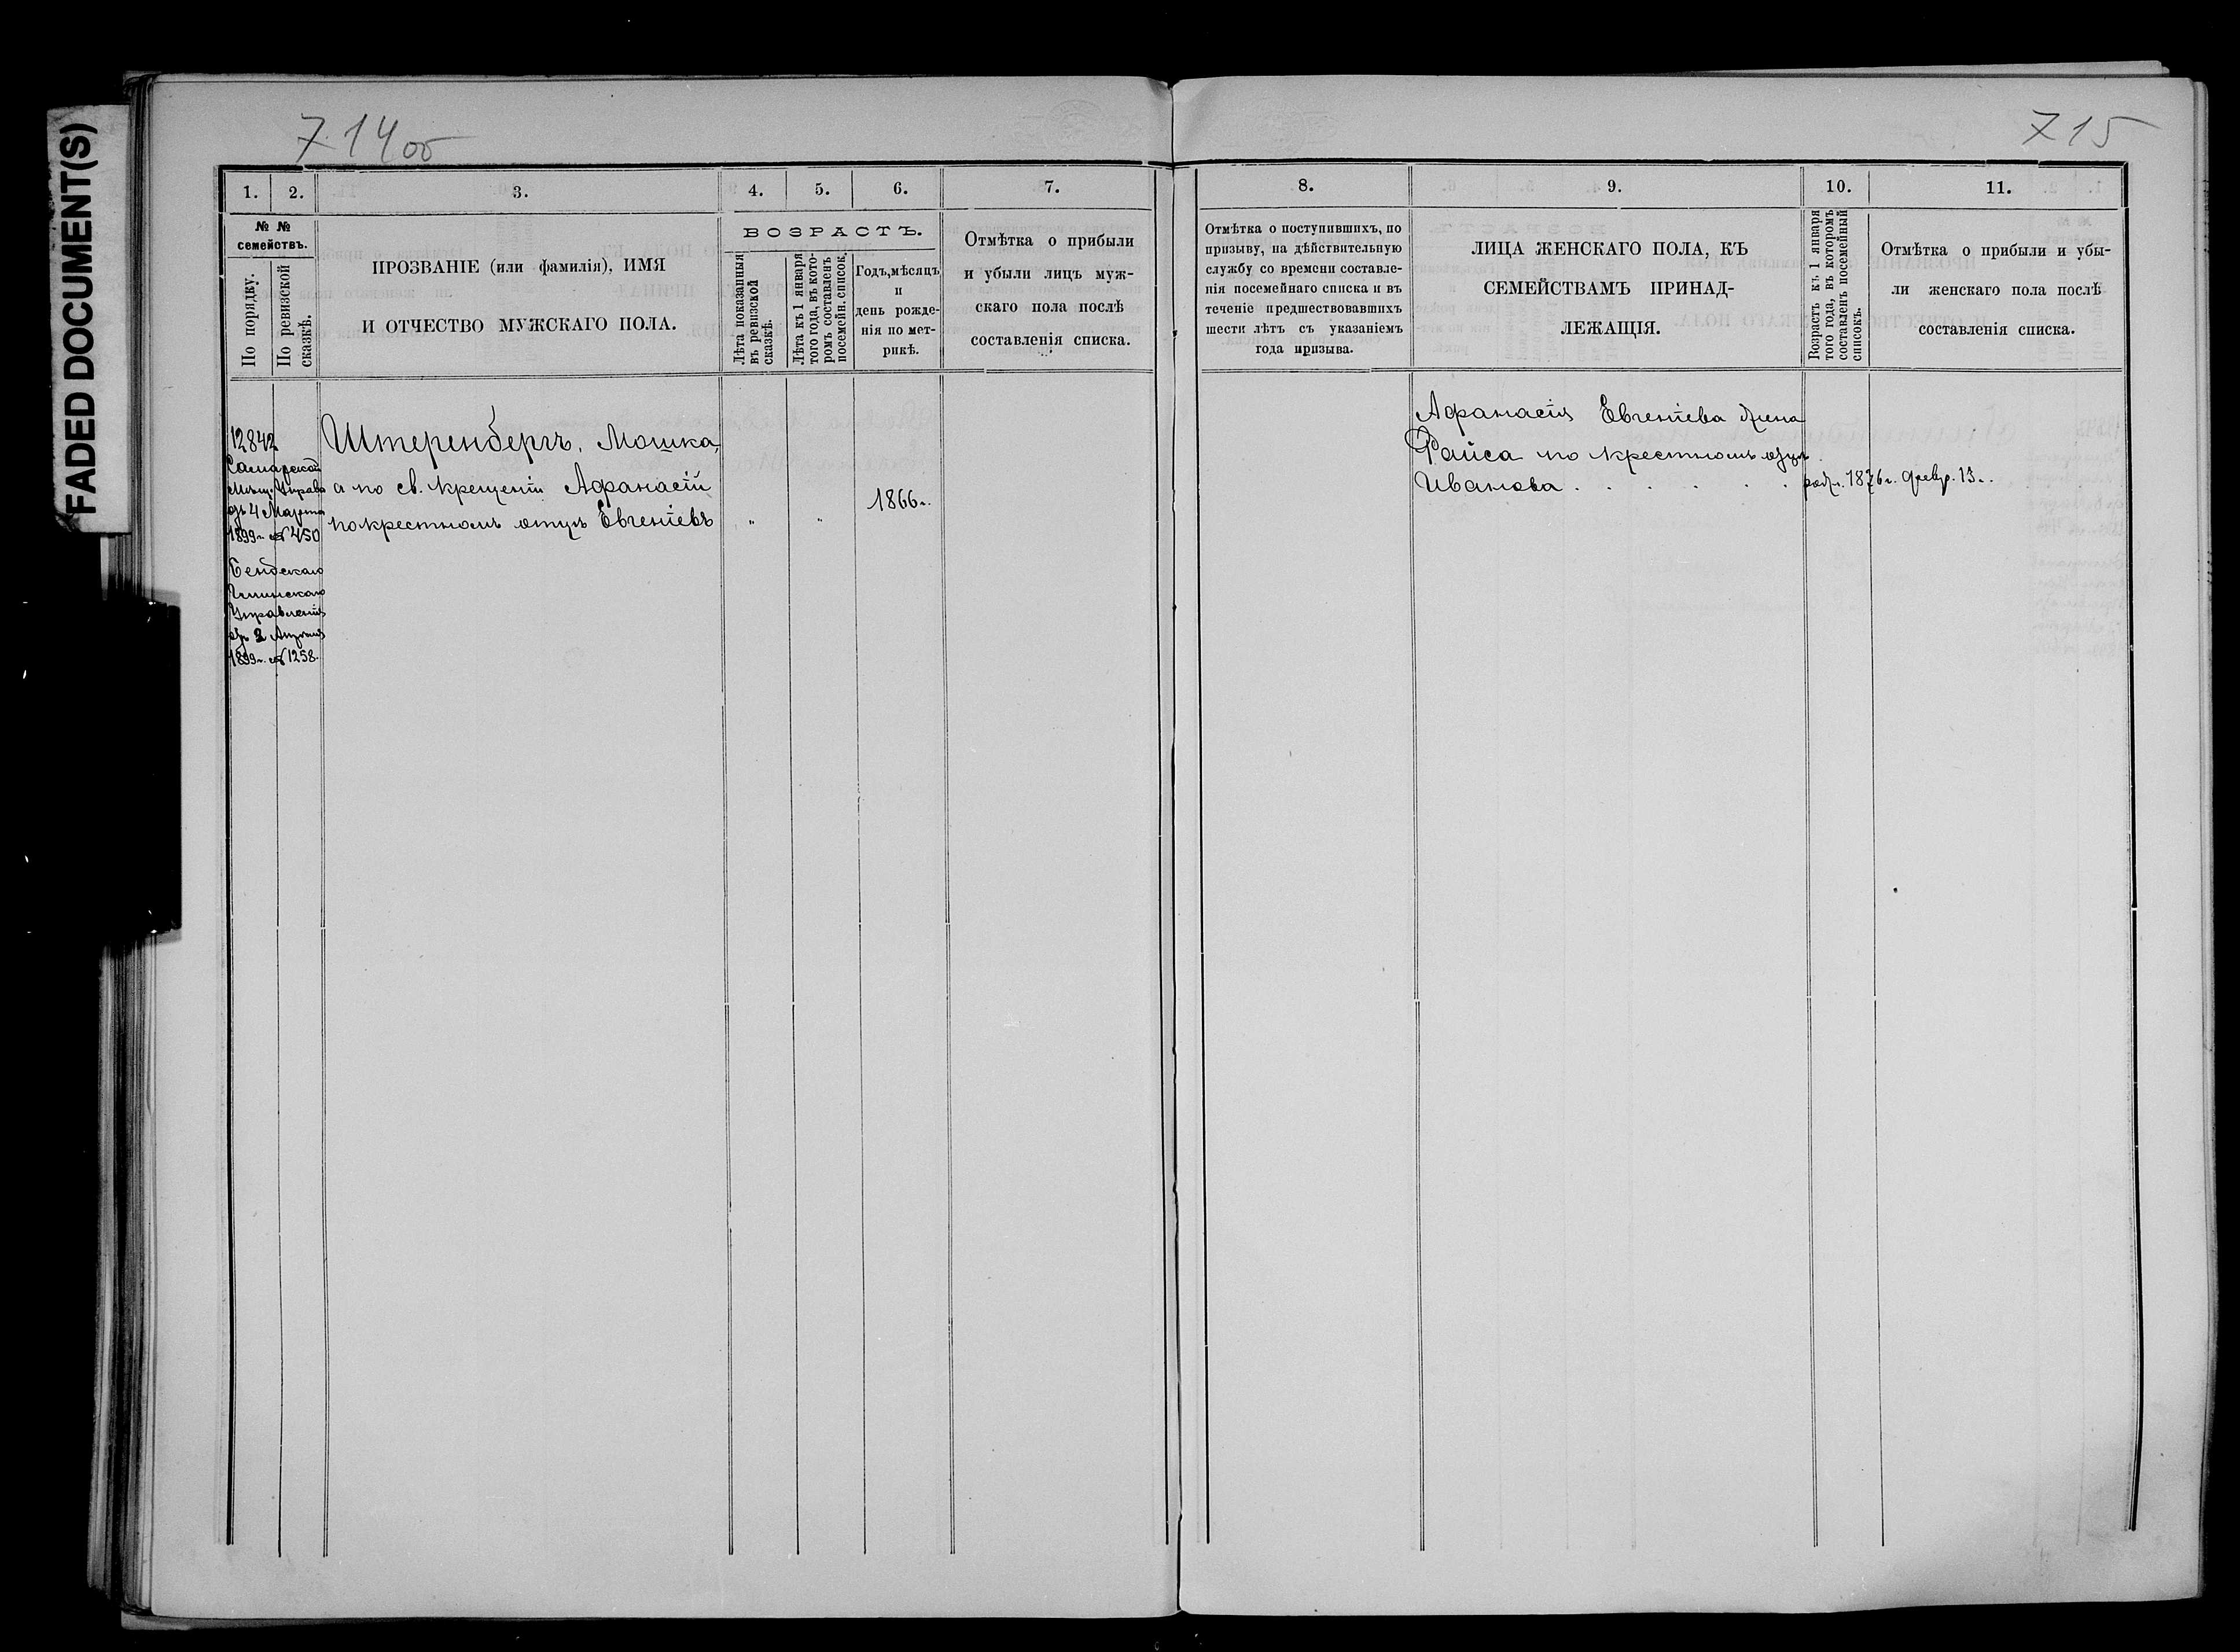 FADED DOCUMENT(S)
714 об
715
1.
2.
3.
4.
5.
6.
7.
8.
9.
10.
11.
№ №
семействъ.
По порядку.
По ревизской
сказкѣ.
ПРОЗВАНІЕ (или фамилія), ИМЯ
И ОТЧЕСТВО МУЖСКАГО ПОЛА.
ВОЗРАСТЪ.
Лѣта показанныя
въ ревизской
сказкѣ.
Лѣта къ 1 января
того года, въ кото-
ромъ составленъ
посемейн. список.
Годъ, мѣсяцъ
и
день рожде-
нія по мет-
рикѣ.
Отмѣтка о прибыли
и убыли лицъ муж-
скаго пола послѣ
составленія списка.
Отмѣтка о поступившихъ, по
призыву, на дѣйствительную
службу со времени составле-
нія посемейнаго списка и въ
теченіе предшествовавшихъ
шести лѣтъ съ указаніемъ
года призыва.
ЛИЦА ЖЕНСКАГО ПОЛА, КЪ
СЕМЕЙСТВАМЪ ПРИНАД-
ЛЕЖАЩІЯ.
Возрастъ къ 1 января
того года, въ которомъ
составленъ посемейный
списокъ.
Отмѣтка о прибыли и убы-
ли женскаго пола послѣ
составленія списка.
12842
Самарской
Мѣщ. Управы
отъ 4 Марта
1899 г. № 450
Управленія
2 Апрѣля
1899 г. № 1258.
Штеренбергъ, Мошка,
а по св. крещеніи Афанасій
по крестномъ отцѣ Евгеніевъ
" "
1866 г.
Афанасія Евгеніева жена
Раиса по крестномъ отцѣ
Иванова . . . . . .
род. 1876 г. февр. 13 г.